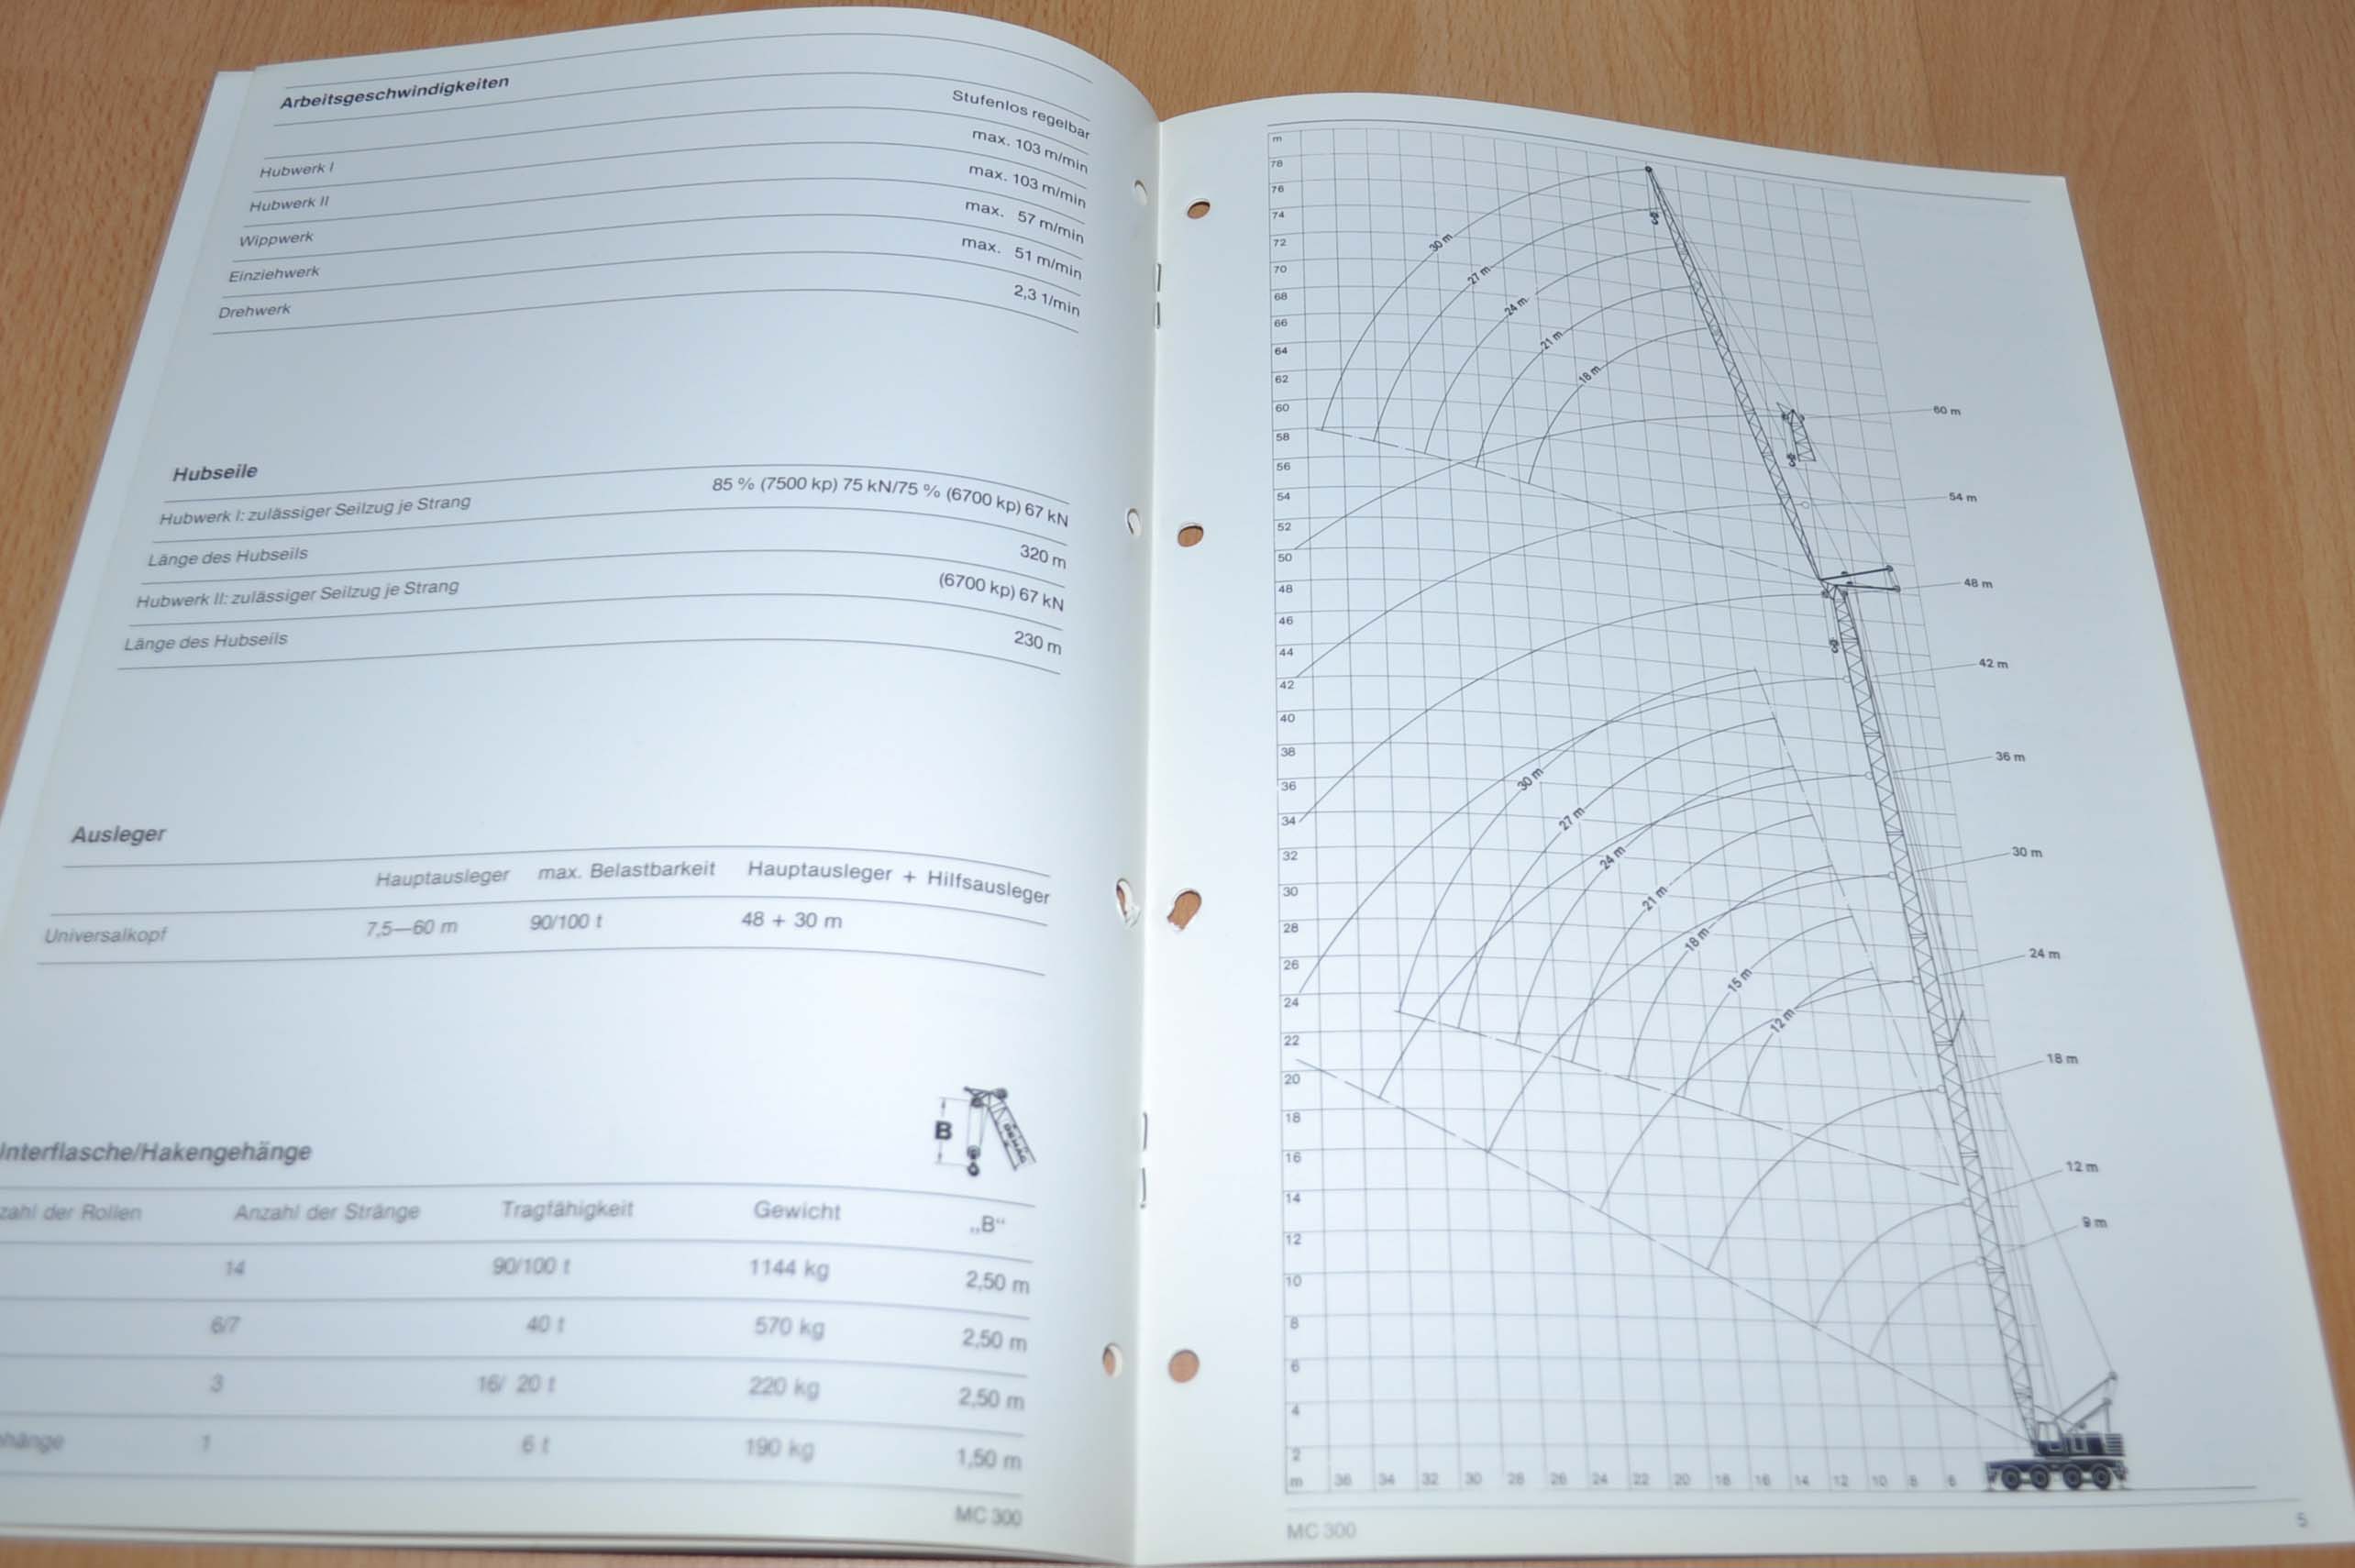 Arbeitsgeschwindigkeiten
Stufenlos regelbar
Hubwerk I max. 103 m/min
Hubwerk II max. 103 m/min
Wippwerk max. 57 m/min
Einziehwerk max. 51 m/min
Drehwerk 2,3 1/min
Hubseile
Hubwerk I: zulässiger Seilzug je Strang 85 % (7500 kp) 75 kN/75 % (6700 kp) 67 kN
Länge des Hubseils 320 m
Hubwerk II: zulässiger Seilzug je Strang (6700 kp) 67 kN
Länge des Hubseils 230 m
Ausleger
Hauptausleger max. Belastbarkeit Hauptausleger + Hilfsausleger
Universalkopf 7,5—60 m 90/100 t 48 + 30 m
B
DEMAG
Unterflasche/Hakengehänge
zahl der Rollen Anzahl der Stränge Tragfähigkeit Gewicht „B“
14 90/100 t 1144 kg 2,50 m
6/7 40 t 570 kg 2,50 m
3 16/ 20 t 220 kg 2,50 m
hänge 1 6 t 190 kg 1,50 m
MC 300
m
78
76
74
72
70
68
66
64
62
60
58
56
54
52
50
48
46
44
42
40
38
36
34
32
30
28
26
24
22
20
18
16
14
12
10
8
6
4
2
m 36 34 32 30 28 26 24 22 20 18 16 14 12 10 8 6
30 m
27 m
24 m
21 m
18 m
30 m
27 m
24 m
21 m
18 m
15 m
12 m
60 m
54 m
48 m
42 m
36 m
30 m
24 m
18 m
12 m
9 m
MC 300
5